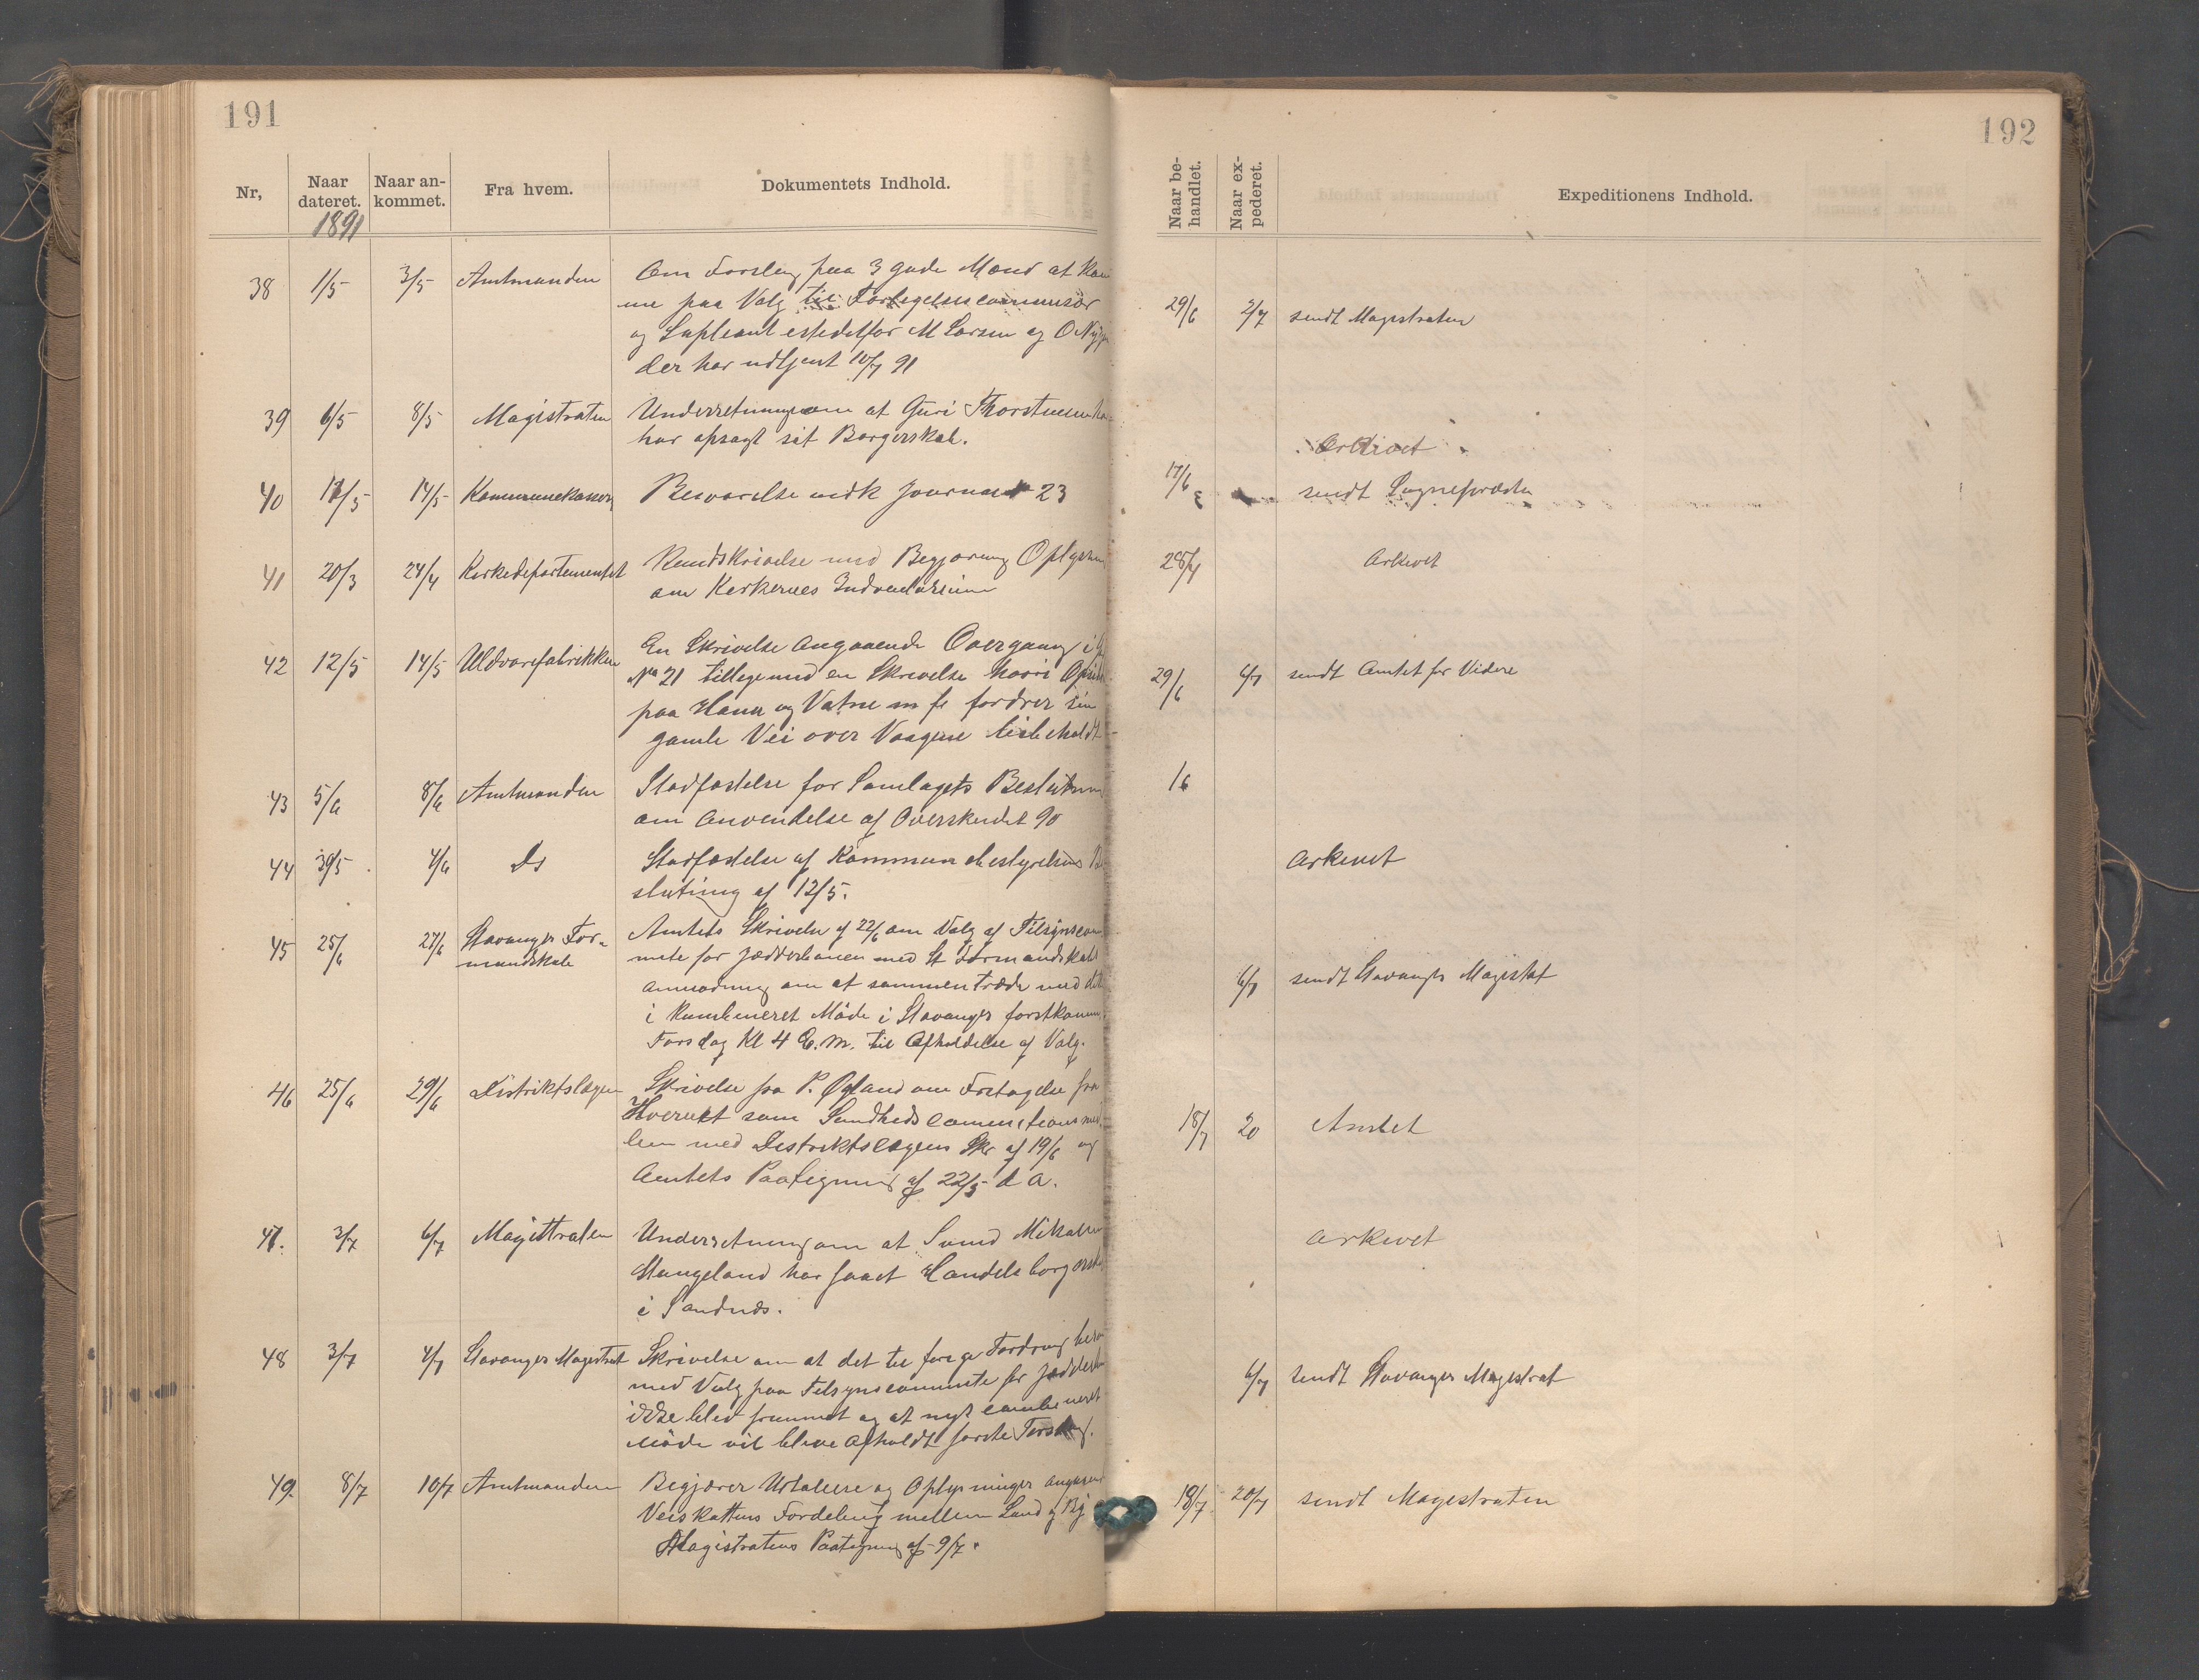 191
Nr,
Naar dateret.
Naar an-kommet.
Fra hvem.
Dokumentets Indhold.
1891
38 1/5 3/5 Amtmanden Om Forslag paa 3 gode Mænd at kom
me paa Valg til Forligelsescommisær
og Supleant istedetfor M Larsen og O
der har udtjent 10/7 91
39 6/5 8/5 Magistraten Underretning om at Guri
har opsagt sit Borgerskab.
40 14/5 Kommunekasser Besvarelse vedk Journal 23
41 20/3 24/4 Kirkedepartementet Rundskrivelse med Begjæring Oplysn
om Kirkernes Indventarium
42 12/5 14/5 Uldvarefabrikken En Skrivelse angaaende Overgang i
No 21 tilligemed en Skrivelse hvori
paa Hana og Vatne m fl fordrer sin
gamle Vei over Vaagene bibeholdt
43 5/6 8/6 Amtmanden Stadfæstelse for Samlagets Beslutning
om Anvendelse af Overskudet 90
44 4/6 Ds Stadfæstelse af Kommunebestyrelsens Be
slutning af 12/5.
45 25/6 27/6 Stavanger For-
mandskab
Amtets Skrivelse af 22/6 om Valg af Tilsynscom
mite for Jædderbanen med St Formandskabs
Anmodning om at sammentræde med dette
i kombineret Møde i Stavanger førstkomm.
Torsdag Kl 4 E.m. til Afholdelse af Valg.
46 25/6 29/6 Distriktslægen Skrivelse fra P. Øgland om Fritagelse fra
Hvervet som Sundhedscommitions med
lem med Distriktslægens Skr af 19/6 og
Amtets Paategning af 22/5 d A.
47. 3/7 6/7 Magistraten Underretning om at Svend Mikalsen
Stangeland har faaet Handelsborgersk
i Sandnæs.
48 3/7 4/7 Stavanger Magistrat Skrivelse om at det til forige Torsdag
med Valg paa Tilsynscommite for Jædderb
ikke blev fremmet og at nyt combineret
Møde vil blive afholdt første Torsdag.
49. 8/7 10/7 Amtmanden Begjærer Udtalelse og Oplysninger angaaend
Veiskattens Fordeling mellem Land og By
Magistratens Paategning af 9/7.
192
Naar be-handlet.
Naar ex-pederet.
Expeditionens Indhold.
29/6 2/7 sendt Magistraten
Arkivet
17/6 sendt Sognepræsten
28/4 Arkivet
29/6 6/7 sendt Amtet for Videre
16
Arkivet
6/7 sendt Stavanger Magistrat
18/7 20 Amtet
Arkivet
6/7 sendt Stavanger Magistrat
18/7 20/7 sendt Magistraten